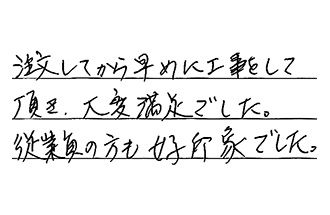 注文してから早めに工事をして
頂き、大変満足でした。
従業員の方も好印象でした。